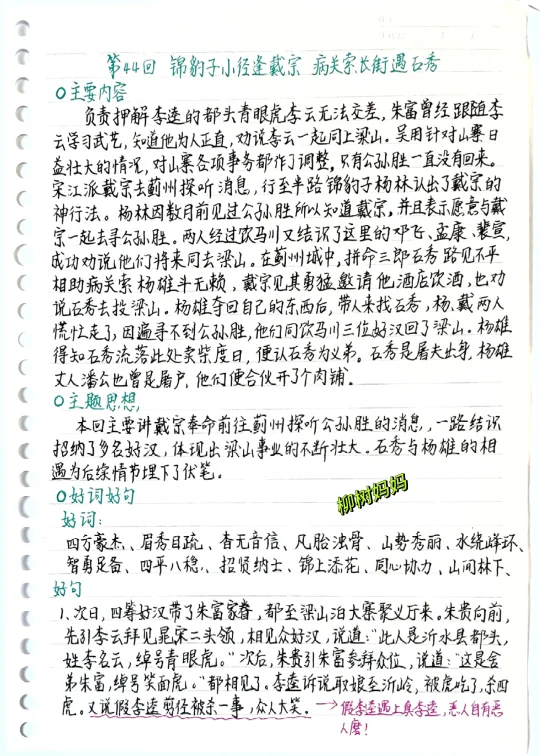 第44回 锦豹子小径逢戴宗 病关索长街遇石秀
○主要内容
负责押解李逵的都头青眼虎李云无法交差，朱富曾经跟随李
云学习武艺，知道他为人正直，劝说李云一起同上梁山。吴用针对山寨日
益壮大的情况，对山寨各项事务都作了调整，只有公孙胜一直没有回来。
宋江派戴宗去蓟州探听消息，行至半路锦豹子杨林认出了戴宗的
神行法。杨林因数月前见过公孙胜所以知道戴宗，并且表示愿意与戴
宗一起去寻公孙胜。两人经过饮马川又结识了这里的邓飞、孟康、裴宣，
成功劝说他们将来同去梁山。在蓟州城中，拼命三郎石秀路见不平
相助病关索杨雄斗无赖，戴宗见其勇猛邀请他酒店饮酒，也劝
说石秀去投梁山。杨雄夺回自己的东西后，带人来找石秀，杨、戴两人
慌忙走了，因遍寻不到公孙胜，他们同饮马川三位好汉回了梁山。杨雄
得知石秀流落此处卖柴度日，便认石秀为义弟。石秀是屠夫出身，杨雄
丈人潘公也曾是屠户，他们便合伙开了个肉铺。
○主题思想
本回主要讲戴宗奉命前往蓟州探听公孙胜的消息，一路结识
招纳了多名好汉，体现出梁山事业的不断壮大。石秀与杨雄的相
遇为后续情节埋下了伏笔。
柳树妈妈
○好词好句
好词：
四方豪杰、眉秀目疏、杳无音信、凡胎浊骨、山势秀丽、水绕峰环、
智勇足备、四平八稳、招贤纳士、锦上添花、同心协力、山间林下、
好句
1、次日，四筹好汉带了朱富家眷，都至梁山泊大寨聚义厅来。朱贵向前，
先引李云拜见晁宋二头领，相见众好汉，说道："此人是沂水县都头，
姓李名云，绰号青眼虎。"次后，朱贵引朱富参拜众位，说道："这是舍
弟朱富，绰号笑面虎。"都相见了。李逵诉说取娘至沂岭，被虎吃了，杀四
虎。又说假李逵剪径被杀一事，众人大笑。→假李逵遇上真李逵，恶人自有恶
人磨！